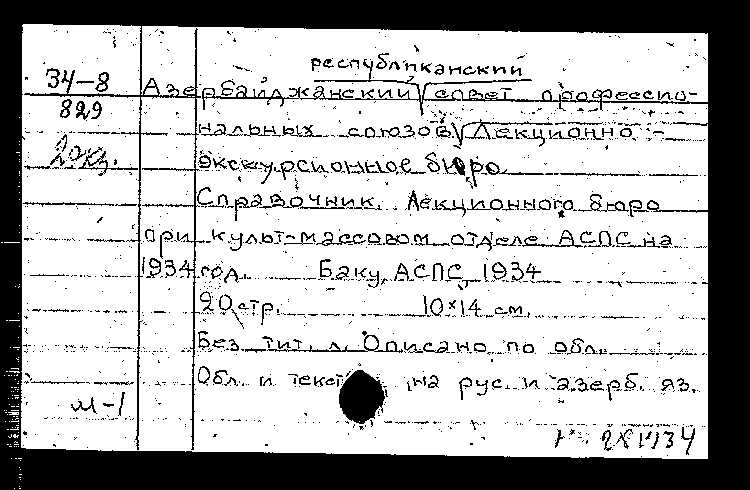 республиканский
34-8 Азербайджанский совет профессио-
829
нальных союзов Лекционно-
экскурсионное бюро
Справочник Лекционного бюро
при культ-массовом отделе АСПС на
1934 год. Баку, АСПС, 1934
20 стр. 10×14 см.
Без тит. л. Описано по обл.
Обл. и текст на рус. и азерб. яз.
м-1